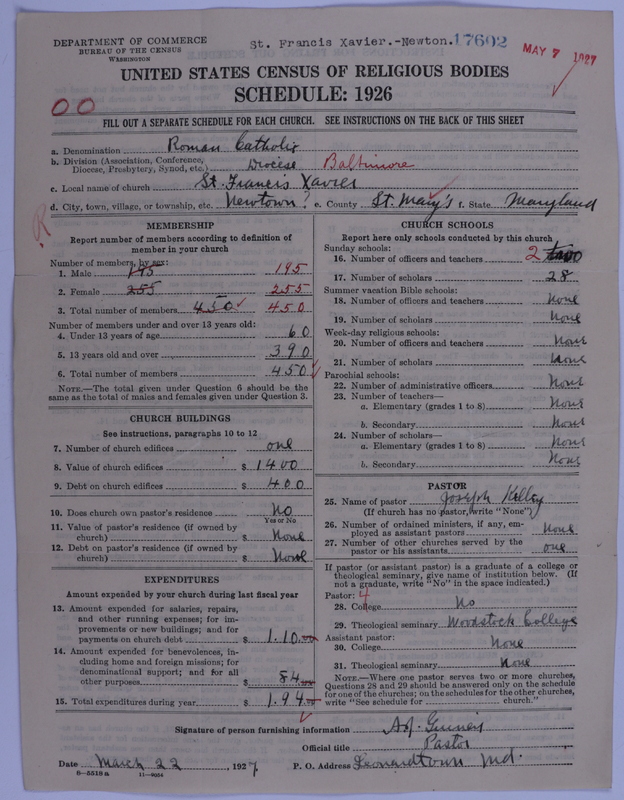 DEPARTMENT OF COMMERCE
BUREAU OF THE CENSUS
WASHINGTON
St. Francis Xavier.-Newton. 17602
MAY 7 1927
UNITED STATES CENSUS OF RELIGIOUS BODIES
SCHEDULE: 1926
00
FILL OUT A SEPARATE SCHEDULE FOR EACH CHURCH. SEE INSTRUCTIONS ON THE BACK OF THIS SHEET
a. Denomination Roman Catholic
b. Division (Association, Conference, Diocese, Presbytery, Synod, etc.) Diocese Baltimore
c. Local name of church St. Francis Xavier
d. City, town, village, or township, etc. Newtown ? e. County St. Mary's f. State Maryland
R
MEMBERSHIP
Report number of members according to definition of
member in your church
Number of members, by sex:
1. Male 195 195
2. Female 255 255
3. Total number of members 450 450
Number of members under and over 13 years old:
4. Under 13 years of age 60
5. 13 years old and over 390
6. Total number of members 450
NOTE.—The total given under Question 6 should be the
same as the total of males and females given under Question 3.
CHURCH BUILDINGS
See instructions, paragraphs 10 to 12
7. Number of church edifices one
8. Value of church edifices $ 1400
9. Debt on church edifices $ 400
10. Does church own pastor's residence No
Yes or No
11. Value of pastor's residence (if owned by
church) $ None
12. Debt on pastor's residence (if owned by
church) $ None
EXPENDITURES
Amount expended by your church during last fiscal year
13. Amount expended for salaries, repairs,
and other running expenses; for im-
provements or new buildings; and for
payments on church debt $ 1.10
14. Amount expended for benevolences, in-
cluding home and foreign missions; for
denominational support; and for all
other purposes $ 84
15. Total expenditures during year $ 1.94
CHURCH SCHOOLS
Report here only schools conducted by this church
Sunday schools:
16. Number of officers and teachers 2 two
17. Number of scholars 28
Summer vacation Bible schools:
18. Number of officers and teachers None
19. Number of scholars None
Week-day religious schools:
20. Number of officers and teachers None
21. Number of scholars None
Parochial schools:
22. Number of administrative officers None
23. Number of teachers—
a. Elementary (grades 1 to 8) None
b. Secondary None
24. Number of scholars—
a. Elementary (grades 1 to 8) None
b. Secondary None
PASTOR
25. Name of pastor Joseph Kelley
(If church has no pastor, write "None")
26. Number of ordained ministers, if any, em-
ployed as assistant pastors None
27. Number of other churches served by the
pastor or his assistants one
If pastor (or assistant pastor) is a graduate of a college or
theological seminary, give name of institution below. (If
not a graduate, write "No" in the space indicated.)
Pastor: 4
28. College No
29. Theological seminary Woodstock College
Assistant pastor:
30. College None
31. Theological seminary None
NOTE.—Where one pastor serves two or more churches,
Questions 28 and 29 should be answered only on the schedule
for one of the churches; on the schedules for the other churches,
write "See schedule for church."
Signature of person furnishing information
Official title Pastor
Date March 22, 1927 P. O. Address Leonardtown Md.
8-5518a 11-9054